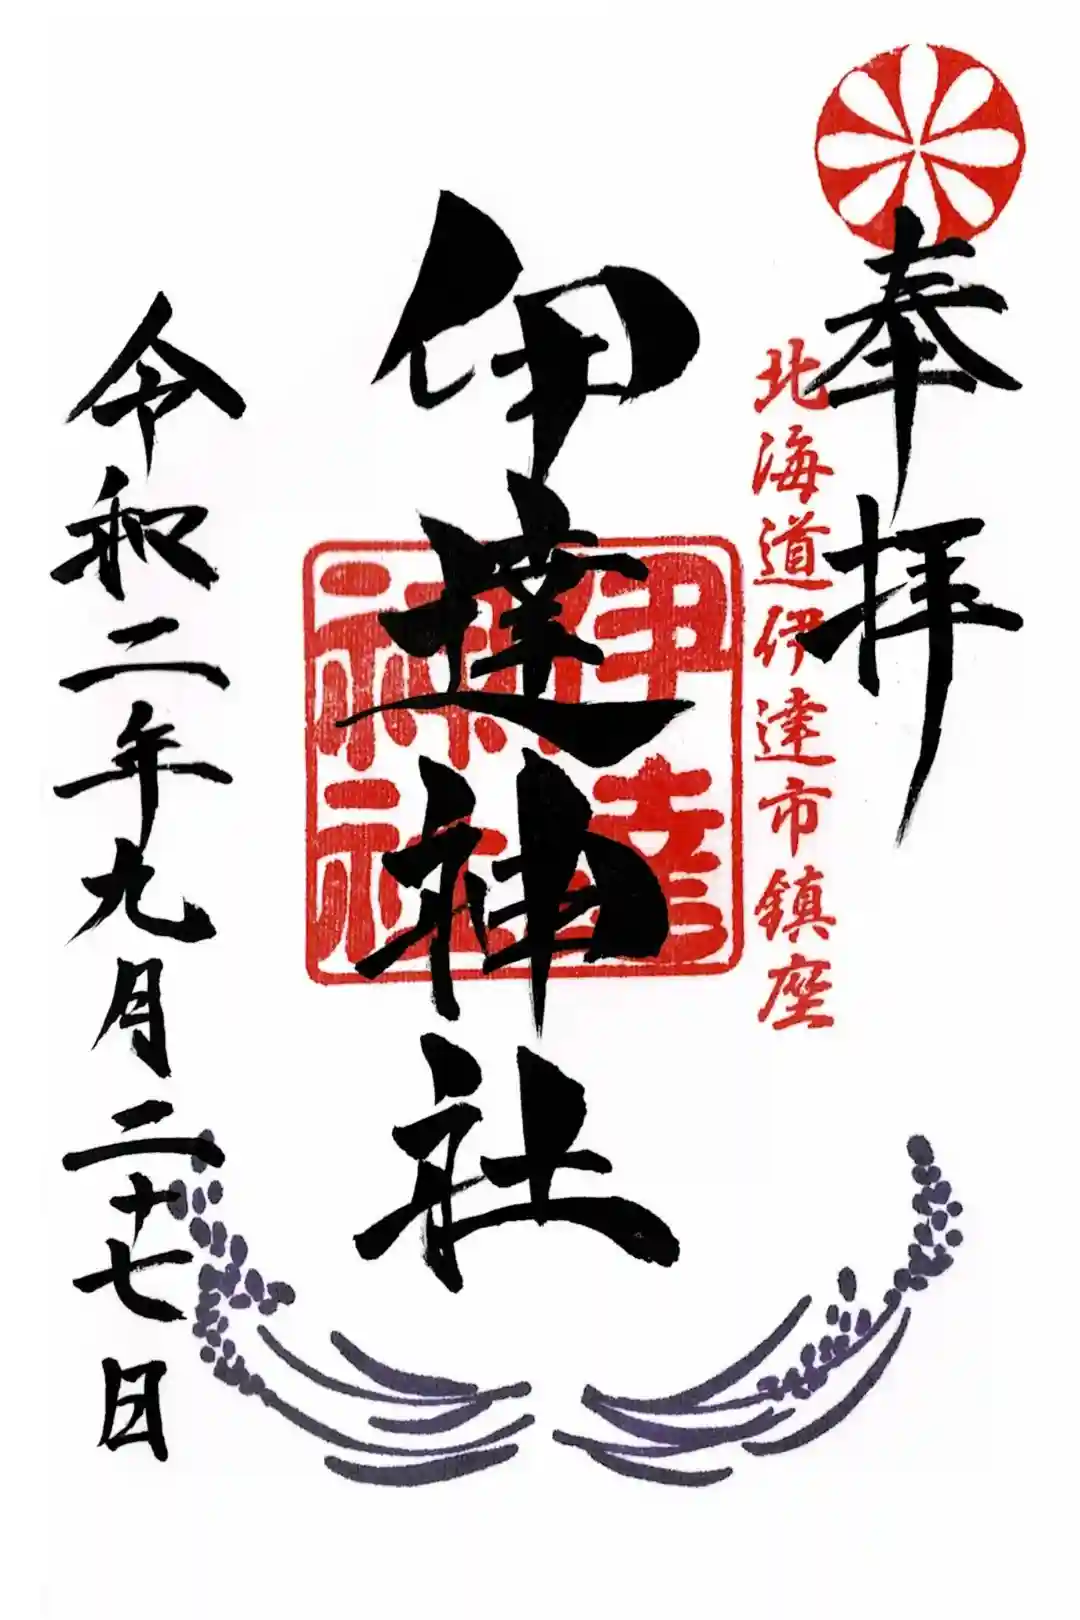 奉拝
北海道伊達市鎮座
伊達神社
伊達
神社
令和二年九月二十七日